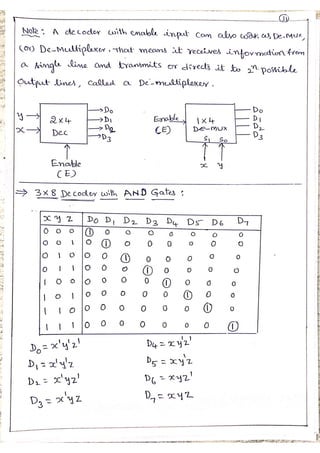 11
Note: A decoder with enable input can also work as De-Mux,
(or) De-Multiplexer. That means it receives information from
a single line and transmits or directs it to 2^n possible
Output lines, called a De-multiplexer.
y x 2x4 Dec D0 D1 D2 D3 Enable (E)
Enable (E) 1x4 De-mux S1 S0 D0 D1 D2 D3 x y
⇒ 3x8 Decoder with AND Gates:
x y z D0 D1 D2 D3 D4 D5 D6 D7
0 0 0 1 0 0 0 0 0 0 0
0 0 1 0 1 0 0 0 0 0 0
0 1 0 0 0 1 0 0 0 0 0
0 1 1 0 0 0 1 0 0 0 0
1 0 0 0 0 0 0 1 0 0 0
1 0 1 0 0 0 0 0 1 0 0
1 1 0 0 0 0 0 0 0 1 0
1 1 1 0 0 0 0 0 0 0 1
D0 = x'y'z' D4 = xy'z'
D1 = x'y'z D5 = xy'z
D2 = x'yz' D6 = xyz'
D3 = x'yz D7 = xyz